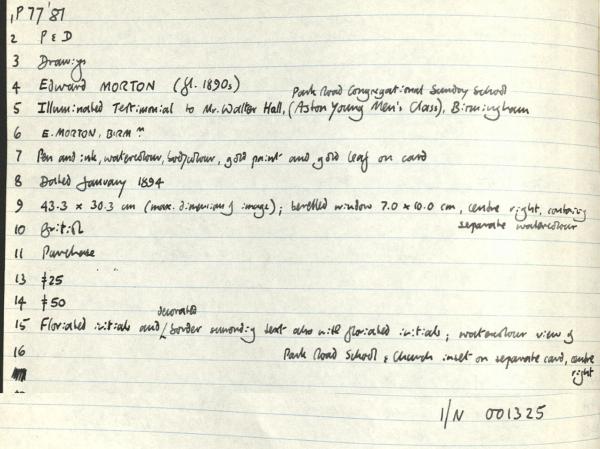 1 P 77'81
2 P & D
3 Drawings
4 Edward MORTON (fl. 1890s)
Park Road Congregational Sunday School
5 Illuminated Testimonial to Mr. Walter Hall, (Aston Young Men's Class), Birmingham
6 E. MORTON, BIRM M
7 Pen and ink, watercolour, bodycolour, gold paint and gold leaf on card
8 Dated January 1894
9 43.3 x 30.3 cm (max. dimensions of image); bevelled window 7.0 x 10.0 cm, centre right, containing
separate watercolour
10 British
11 Purchase
13 £25
14 £50
decorated
15 Floriated initials and border surrounding text also with floriated initials; watercolour view of
16 Park Road School & Church inset on separate card, centre
right
I/N 001325